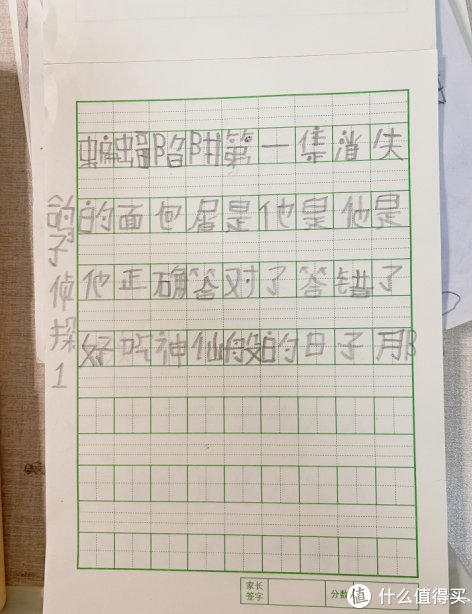 蝙蝠陷阱第一集消失
的面包屑是他是他是
他正确答对了答错了
好吃神仙般的日子那
鸽子侦探1
家长
签字
分数
值 什么值得买